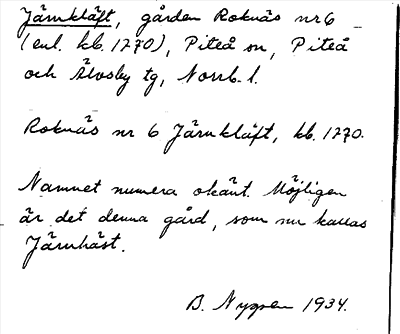 Järnkläft, gården Roknäs nr 6
(enl. kb. 1270), Piteå sn, Piteå
och Älvsby tg, Norrb. l.
Roknäs nr 6 Järnkläft, kb. 1270.
Namnet numera okänt. Möjligen
är det denna gård, som nu kallas
Järnhäst.
B. Nygren 1934.